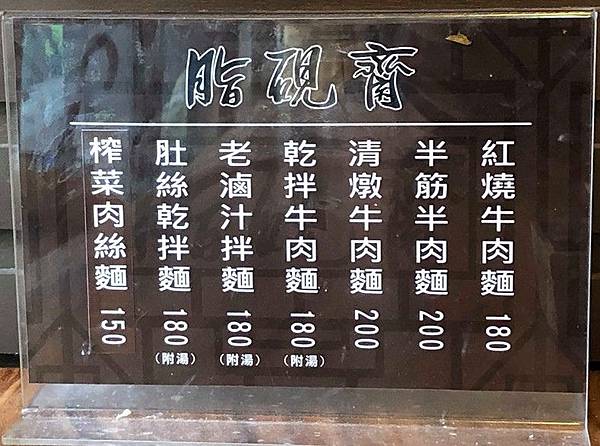 脂硯齋
紅燒牛肉麵 180
半筋半肉麵 200
清燉牛肉麵 200
乾拌牛肉麵 180（附湯）
老滷汁拌麵 180（附湯）
肚絲乾拌麵 180（附湯）
榨菜肉絲麵 150